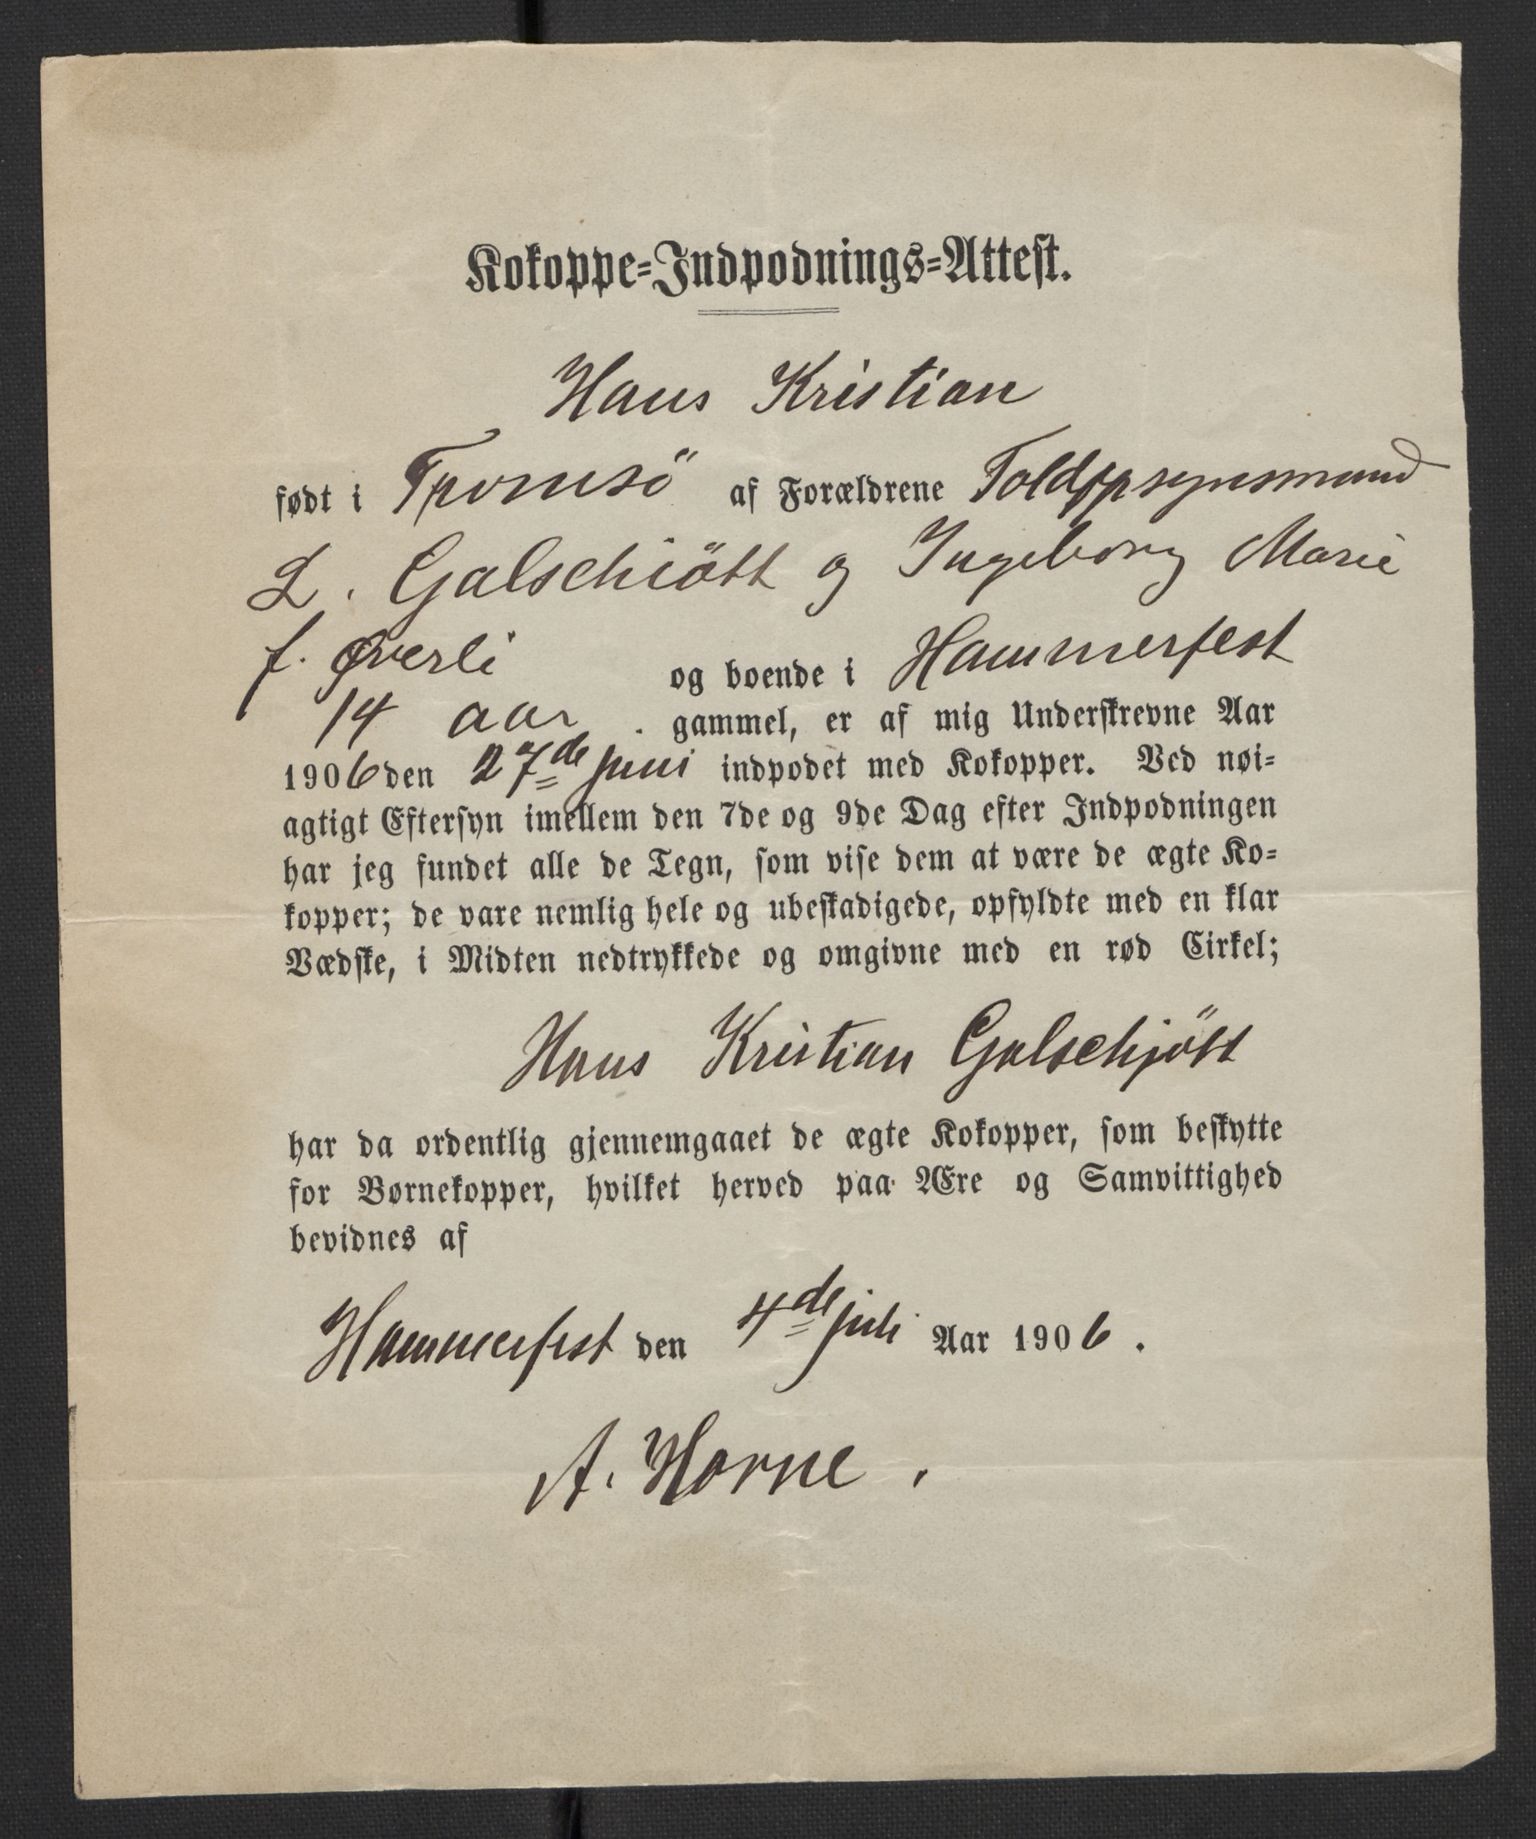 Kokoppe-Indpodnings-Attest.
Hans Kristian
født i Tromsö af Forældrene Toldopsynsmand
L. Galschiött og Ingeborg Marie
f. Øverli og boende i Hammerfest
14 aar . gammel, er af mig Underskrevne Aar
1906 den 27de juni indpodet med Kokopper. Ved nøi-
agtigt Eftersyn imellem den 7de og 9de Dag efter Indpodningen
har jeg fundet alle de Tegn, som vise dem at være de ægte Ko-
kopper; de vare nemlig hele og ubeskadigede, opfyldte med en klar
Vædske, i Midten nedtrykkede og omgivne med en rød Cirkel;
Hans Kristian Galschjött
har da ordentlig gjennemgaaet de ægte Kokopper, som beskytte
for Børnekopper, hvilket herved paa Ære og Samvittighed
bevidnes af
Hammerfest den 4de juli Aar 1906.
A. Horne.